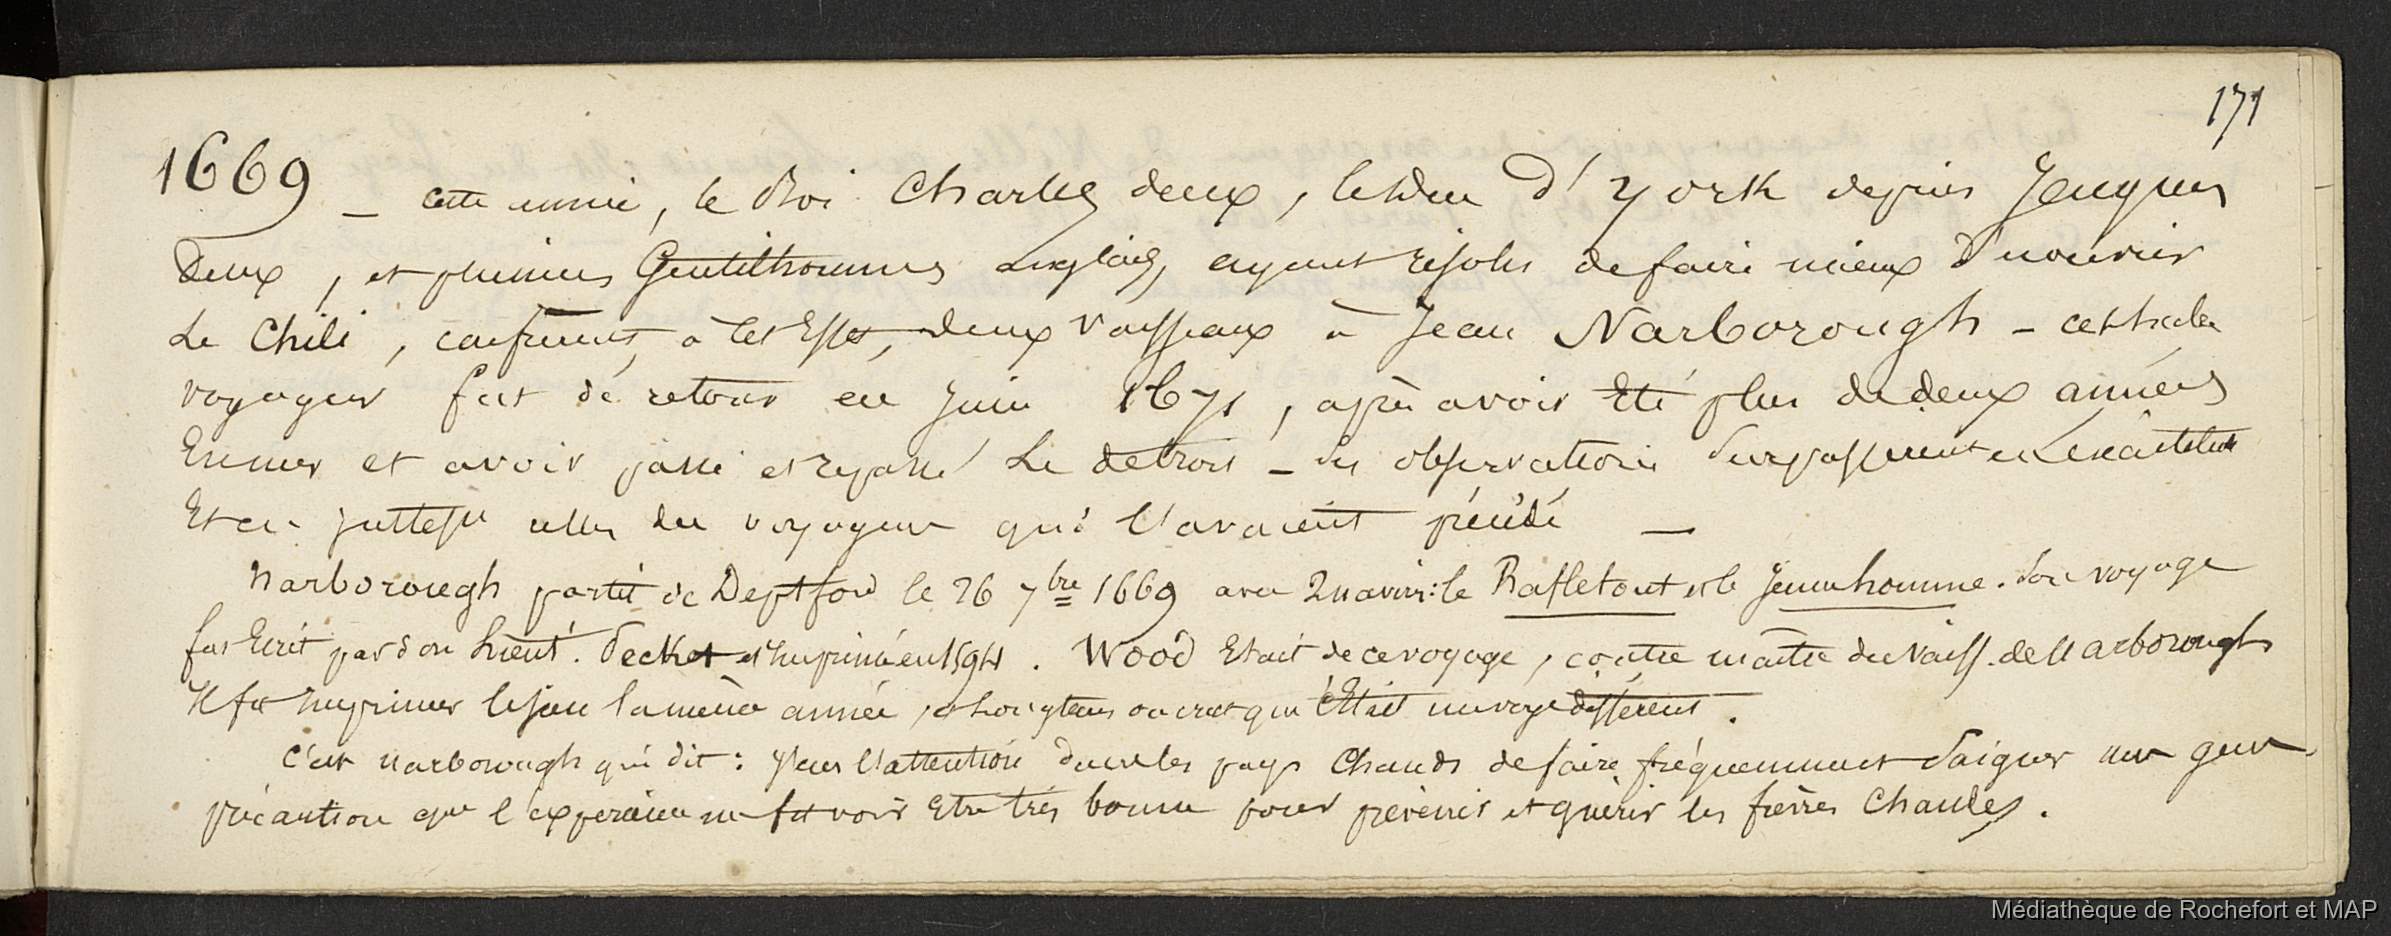 171
1669 – cette année, le Roi Charles deux, le Duc d'York depuis Jacques
Deux, et plusieurs Gentilhommes Anglais, ayant résolu de faire mieux
Le Chili, confierent, à cet effet, deux vaisseaux à Jean Narborough – cet
voyageur fut de retour en Juin 1671, après avoir Eté plus de deux années
En mer et avoir passé et repassé Le detroit – ses observations surpasserent en exactitude
Et en justesse celles des voyageurs qui l'avaient précédé –
Narborough partit de Deptford le 26 7bre 1669 avec 2 navires: le Rafletout et le Jeune homme. Son voyage
fut Ecrit par son Lieut. Pecket et imprimé en 1694. Wood Etait de ce voyage, contre maitre du Vaiss. de Narborough
Il fit imprimer le sien la même année, et longtems on crut que c'Etait un voyage différent.
C'est Narborough qui dit: J'eus l'attention dans les pays Chauds de faire fréquemment Saigner mes gens,
précaution que l'expérience me fit voir Etre très bonne pour prévenir et guérir les fièvres Chaudes.
Médiathèque de Rochefort et MAP